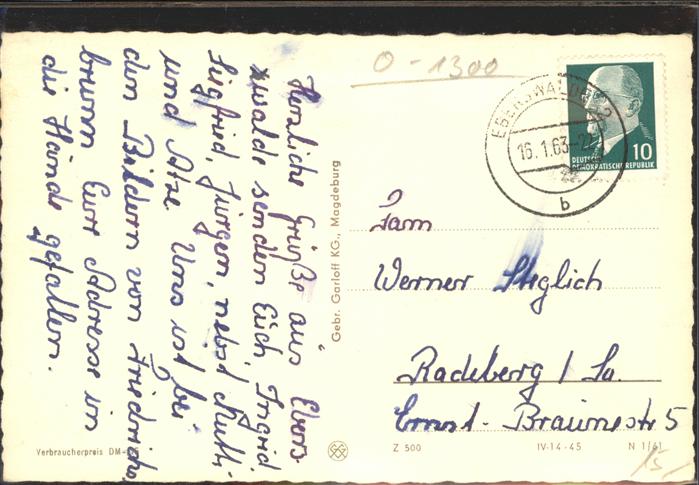 Herzliche Grüße aus Ebers-
walde senden Euch Ingrid
Siegfried, Jürgen, nebst Mutti
und Atze. Uns ist bei
den Bildern von Friedrichs-
brunn Eure Adresse in
die Hände gefallen.
O-1300
EBERSWALDE 2
16.1.63-22
b
10
DEUTSCHE
DEMOKRATISCHE REPUBLIK
Gebr. Garloff KG., Magdeburg
Fam
Werner Steglich
Radeberg / Sa.
Ernst-Braunestr 5
Verbraucherpreis DM
Z 500
IV-14-45
N 1/61